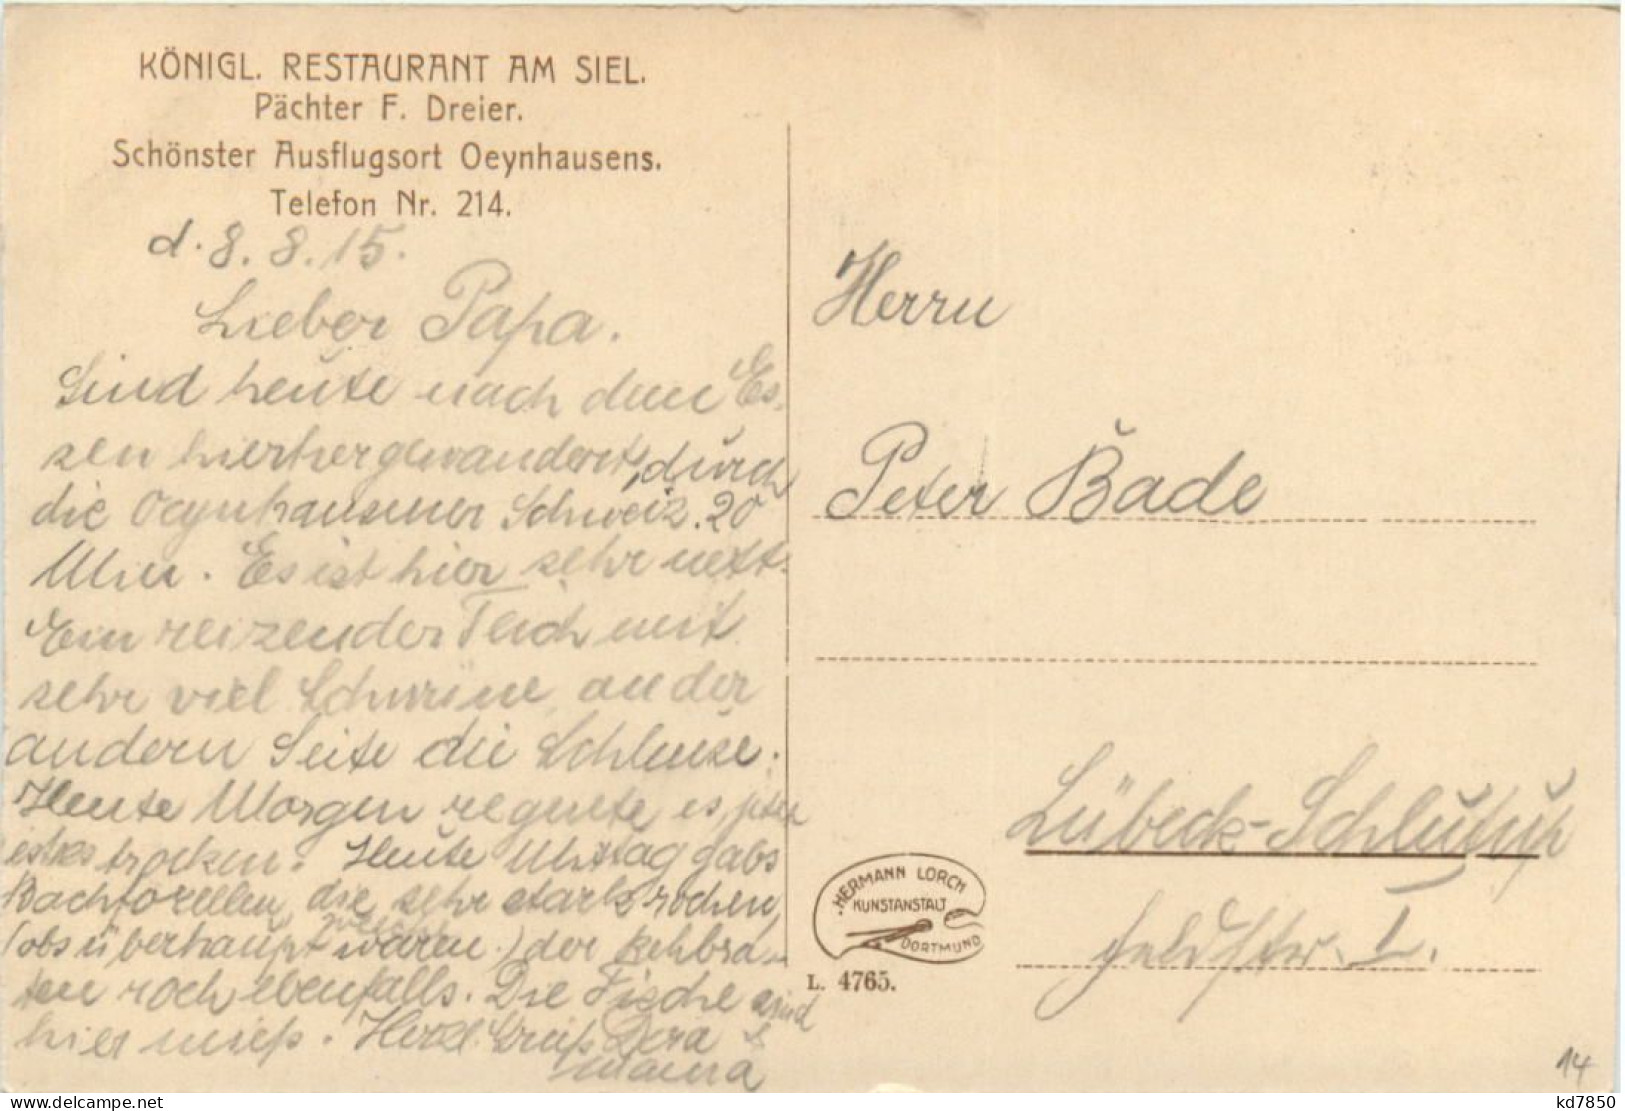 KÖNIGL. RESTAURANT AM SIEL.
Pächter F. Dreier.
Schönster Ausflugsort Oeynhausens.
Telefon Nr. 214.
d. 8. 8. 15.
Lieber Papa.
Sind heute nach dem Es-
sen hierhergewandert, durch
die Oeynhausener Schweiz. 20
Min. Es ist hier sehr nett.
Ein reizender Teich mit
sehr viel Schwäne, an der
andern Seite die Schleuse.
Heute Morgen regnete es, jetzt
ist es trocken. Heute Mittag gabs
Bachforellen, die sehr stark rochen,
(obs überhaupt welche waren.) der Rehbra-
ten roch ebenfalls. Die Fische sind
hier mieß. Herzl. Gruß Dora &
Mama
Herrn
Peter Bade
Lübeck-Schlutup
Feldstr. I.
HERMANN LORCH
KUNSTANSTALT
DORTMUND
L. 4765.
14
kd7850